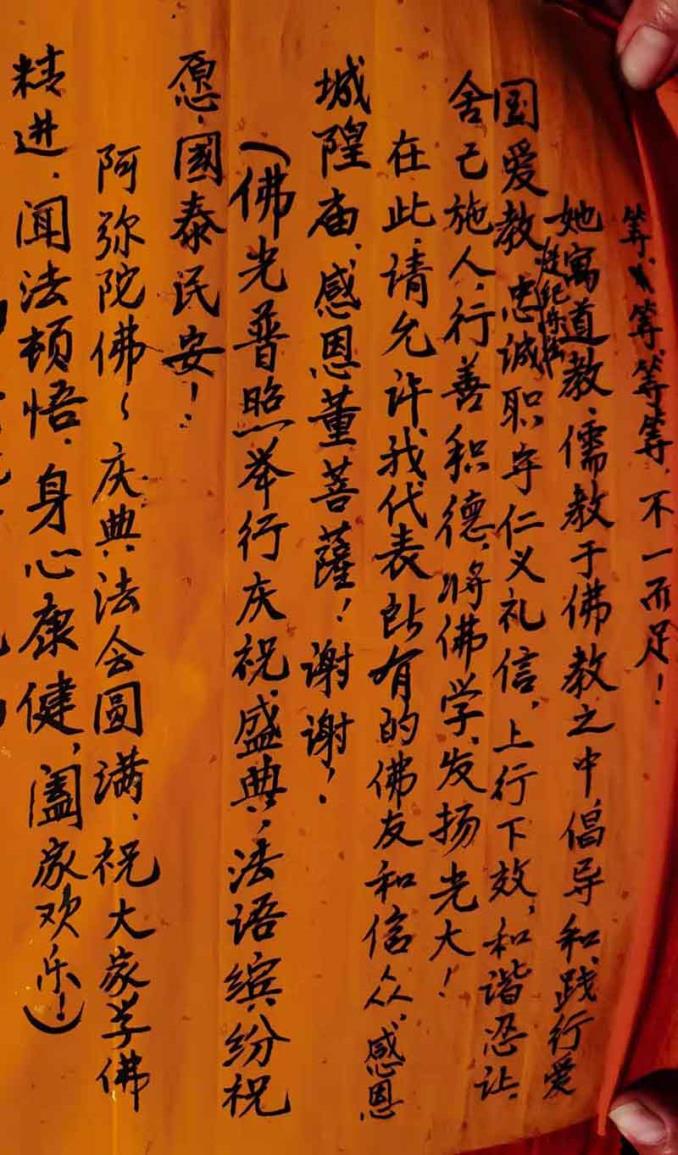 等、等等等，不一而足！
她寓道教、儒教于佛教之中倡导和践行爱
国爱教、忠诚职守仁义礼信，上行下效，和谐忍让，
舍己施人，行善积德，将佛学发扬光大！
在此，请允许我代表所有的佛友和信众，感恩
城隍庙，感恩董菩薩！谢谢！
（佛光普照举行庆祝盛典，法语缤纷祝
愿，國泰民安！
阿弥陀佛~庆典法会圆满，祝大家学佛
精进，闻法顿悟，身心康健，阖家欢乐！）